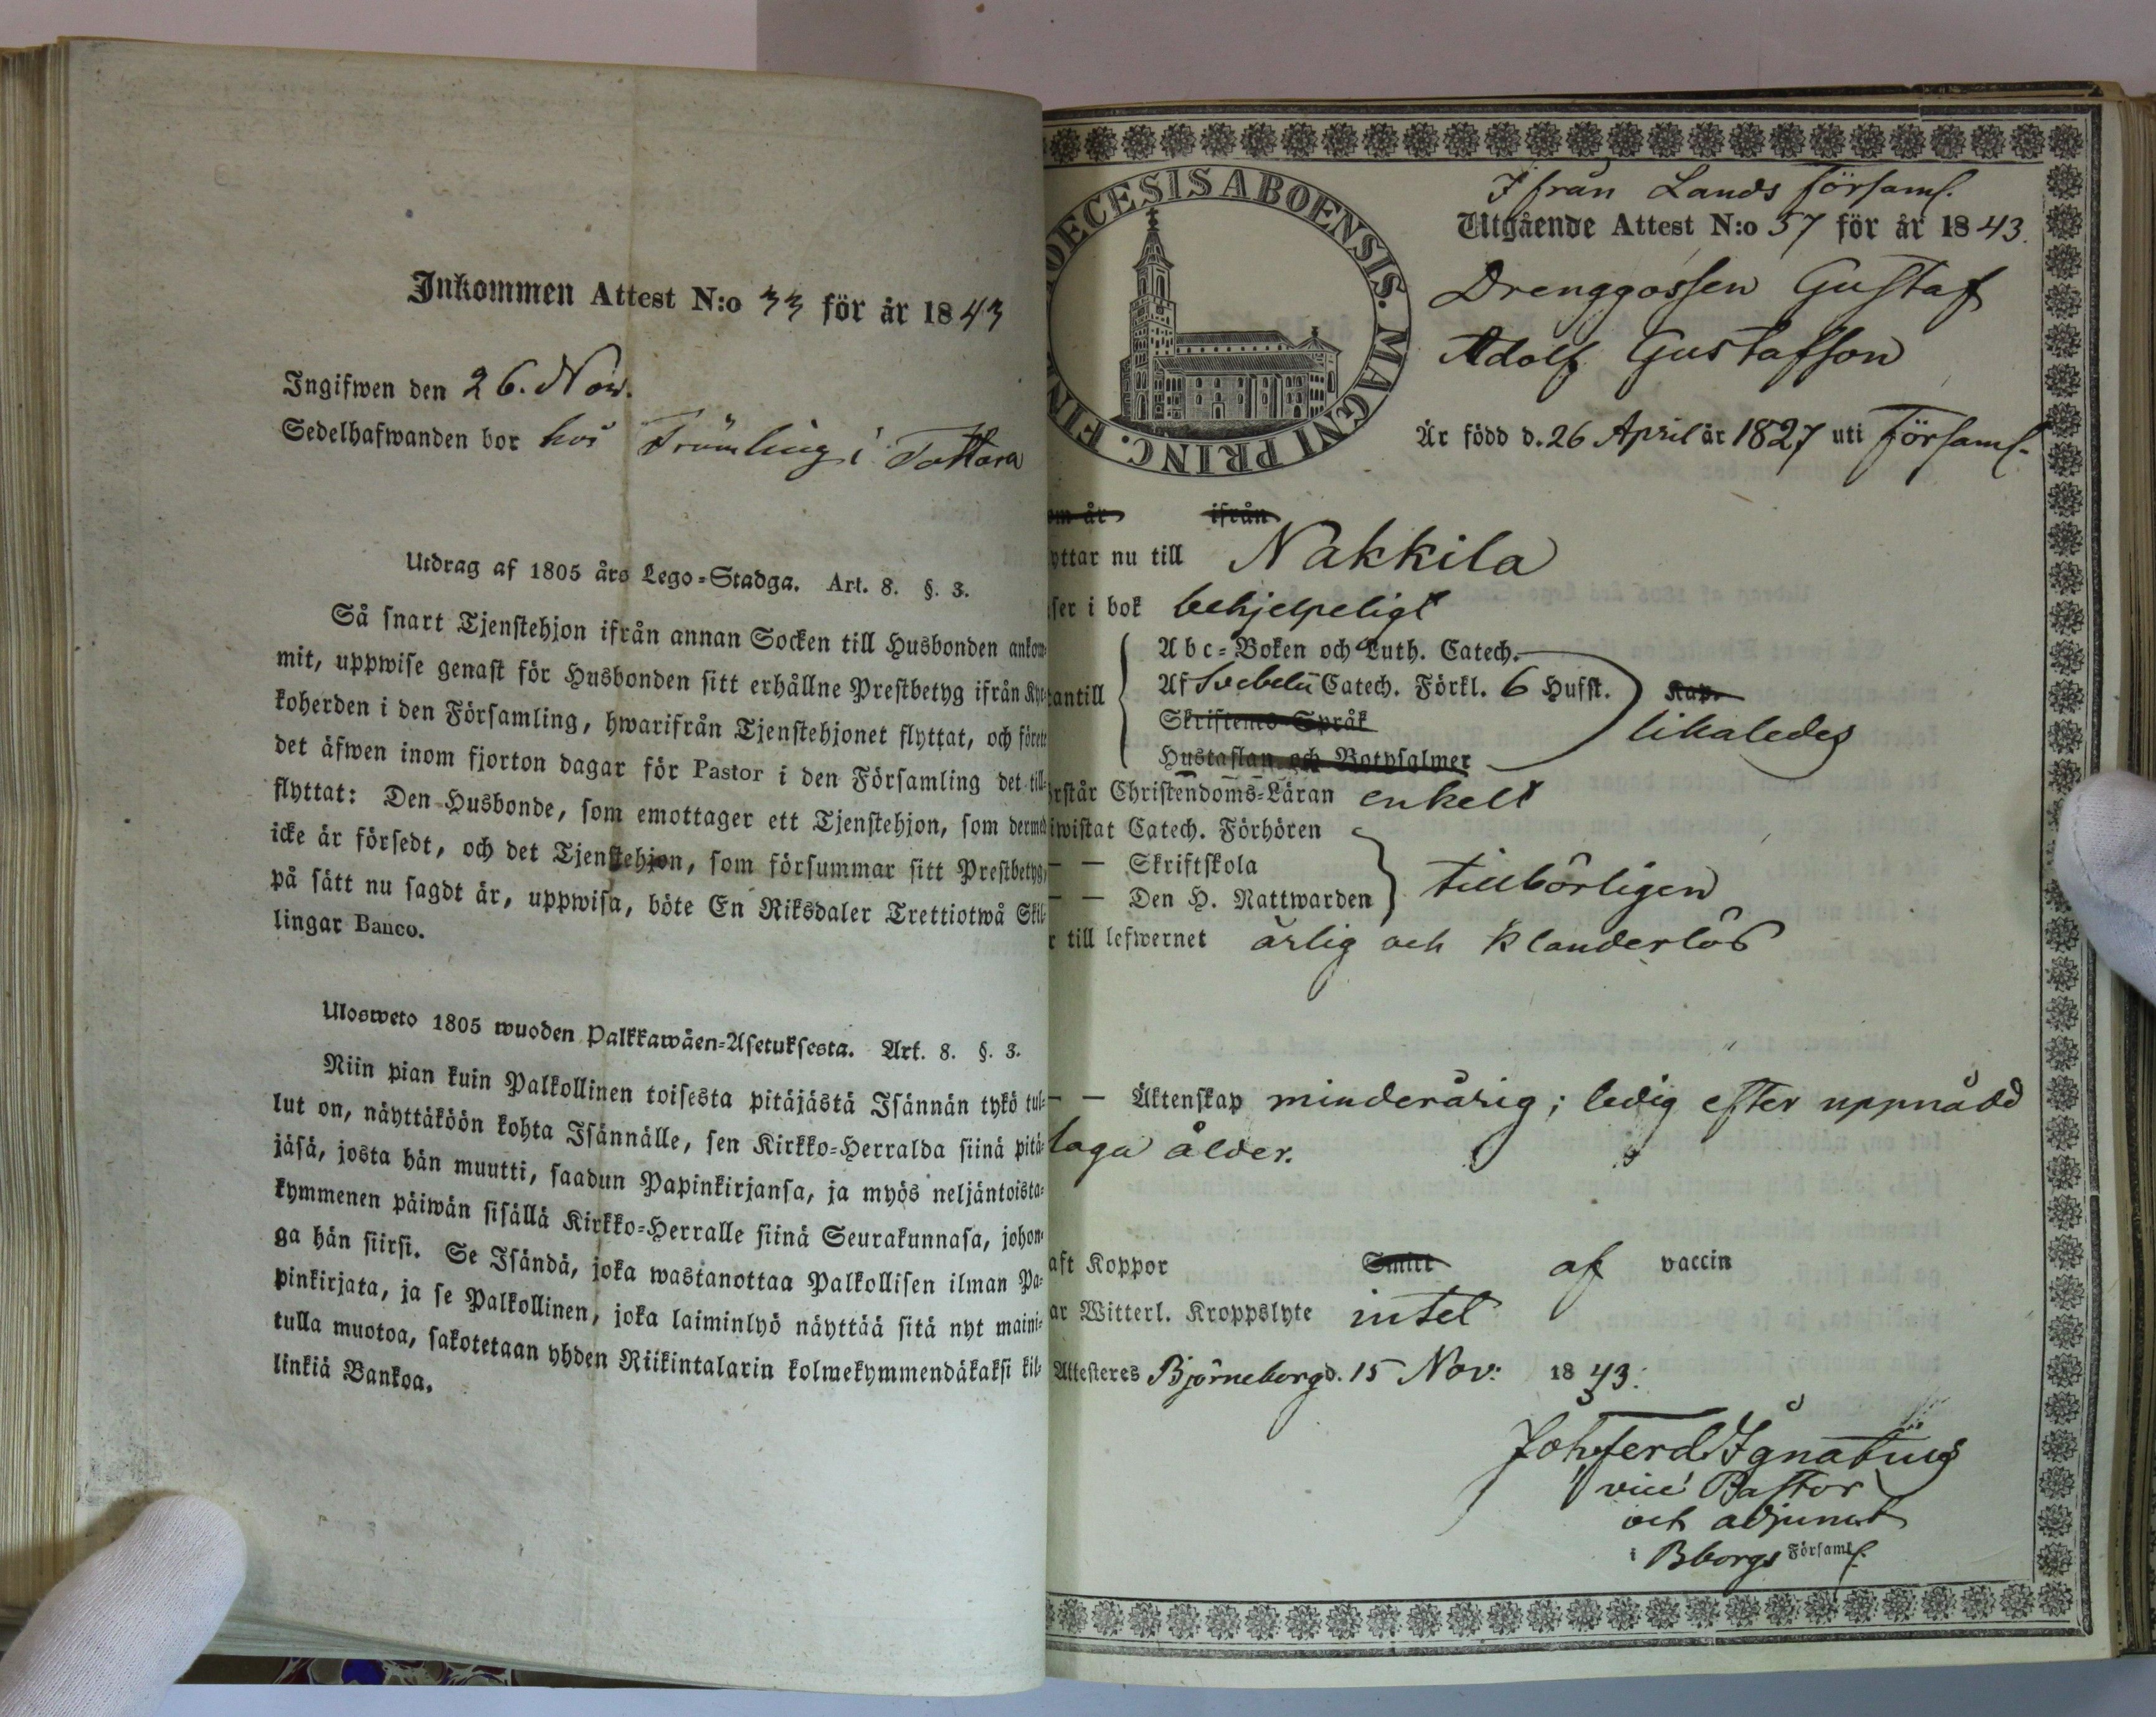 Inkommen Attest N:o 33 för år 1843
Ingifwen den 26. Nov.
Sedelhafwanden bor hos Trömling i Tattara
Utdrag af 1805 års Lego-Stadga. Art. 8. §. 3.
Så snart Tjenstehjon ifrån annan Socken till Husbonden ankom-
mit, uppwise genast för Husbonden sitt erhållne Prestbetyg ifrån Kyr-
koherden i den Församling, hwarifrån Tjenstehjonet flyttat, och förete
det äfwen inom fjorton dagar för Pastor i den Församling det till-
flyttat: Den Husbonde, som emottager ett Tjenstehjon, som dermed
icke är försedt, och det Tjenstehjon, som försummar sitt Prestbetyg,
på sätt nu sagdt är, uppwisa, böte En Riksdaler Trettiotwå Skil-
lingar Banco.
Ulosweto 1805 wuoden Palkkawäen-Asetuksesta. Art. 8. §. 3.
Niin pian kuin Palkollinen toisesta pitäjästä Isännän tykö tul-
lut on, näyttäköön kohta Isännälle, sen Kirkko-Herralda siinä pitä-
jäsä, josta hän muutti, saadun Papinkirjansa, ja myös neljäntoista-
kymmenen päiwän sisällä Kirkko-Herralle siinä Seurakunnasa, johon-
ga hän siirsi. Se Isändä, joka wastanottaa Palkollisen ilman Pa-
pinkirjata, ja se Palkollinen, joka laiminlyö näyttää sitä nyt maini-
tulla muotoa, sakotetaan yhden Riikintalarin kolmekymmendäkaksi kil-
linkiä Bankoa.
OECESIS ABOENSIS. MAGNI PRINC. FIN
Ifrån Lands församl.
Utgående Attest N:o 57 för år 1843.
Drenggossen Gustaf
Adolf Gustafsson
Är född d. 26 April år 1827 uti Församl.
om år ifrån
yttar nu till Nakkila
ser i bok behjelpeligt
Abc-Boken och Luth. Catech.
antill Af Svebelii Catech. Förkl. 6 Hufst. Kap.
Skriftenes Språk likaledes
Hustaflan och Botpsalmer
rstår Christendoms-Läran enkelt
iwistat Catech. Förhören
— — Skriftskola
— — Den H. Nattwarden tillbörligen
r till lefwernet ärlig och klanderlös
— — Äktenskap minderårig; ledig efter uppnådd
laga ålder.
aft Koppor Smitt af vaccin
ar Witterl. Kroppslyte intet
Attesteres Björneborg d. 15 Nov: 1843.
Joh. Ferd. Ignatius
vice Pastor
och adjunct
i Bborgs Församl.